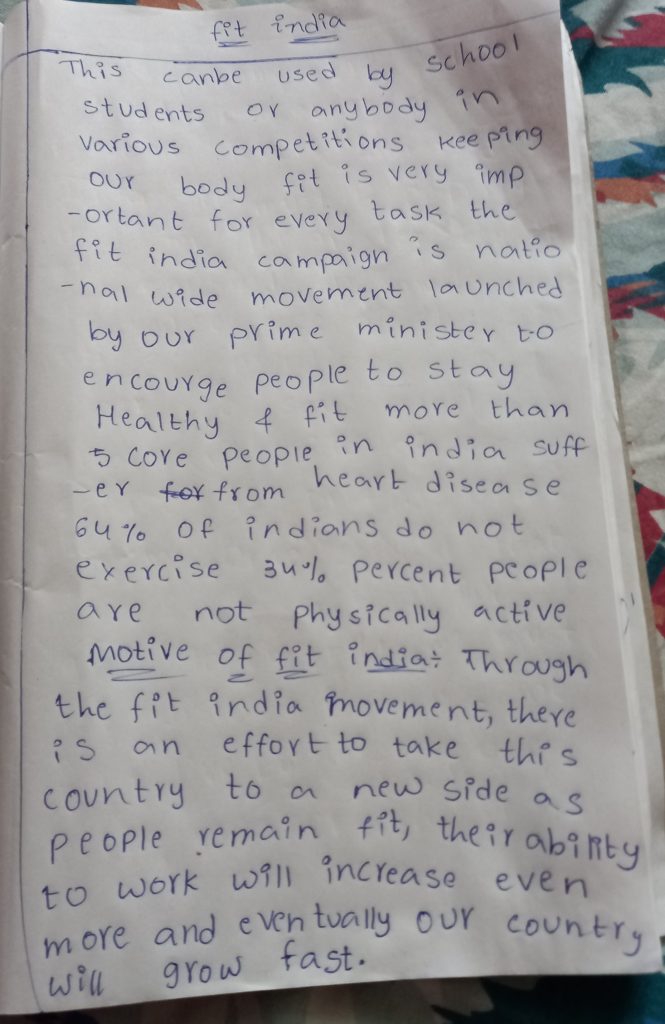 fit india
This canbe used by school
students or anybody in
various competitions keeping
our body fit is very imp
-ortant for every task the
fit india campaign is natio
-nal wide movement launched
by our prime minister to
encourge people to stay
Healthy & fit more than
5 core people in india suff
-er for from heart disease
64% of indians do not
exercise 34% percent people
are not physically active
Motive of fit india: Through
the fit india movement, there
is an effort to take this
country to a new side as
people remain fit, their ability
to work will increase even
more and eventually our country
will grow fast.